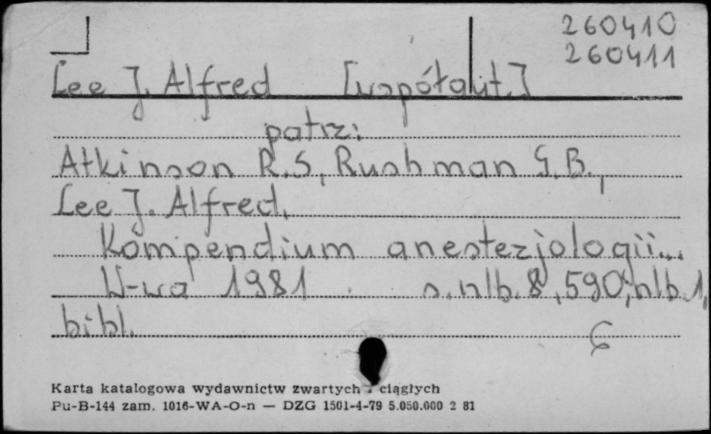 260410
260411
Lee J. Alfred [współaut.]
patrz:
Atkinson R.S, Rushman G.B.,
Lee J. Alfred.
Kompendium anestezjologii...
W-wa 1981 s.nlb.8, 590, nlb.1,
bibl.
Karta katalogowa wydawnictw zwartych i ciągłych
Pu-B-144 zam. 1016-WA-O-n — DZG 1501-4-79 5.050.000 2 81